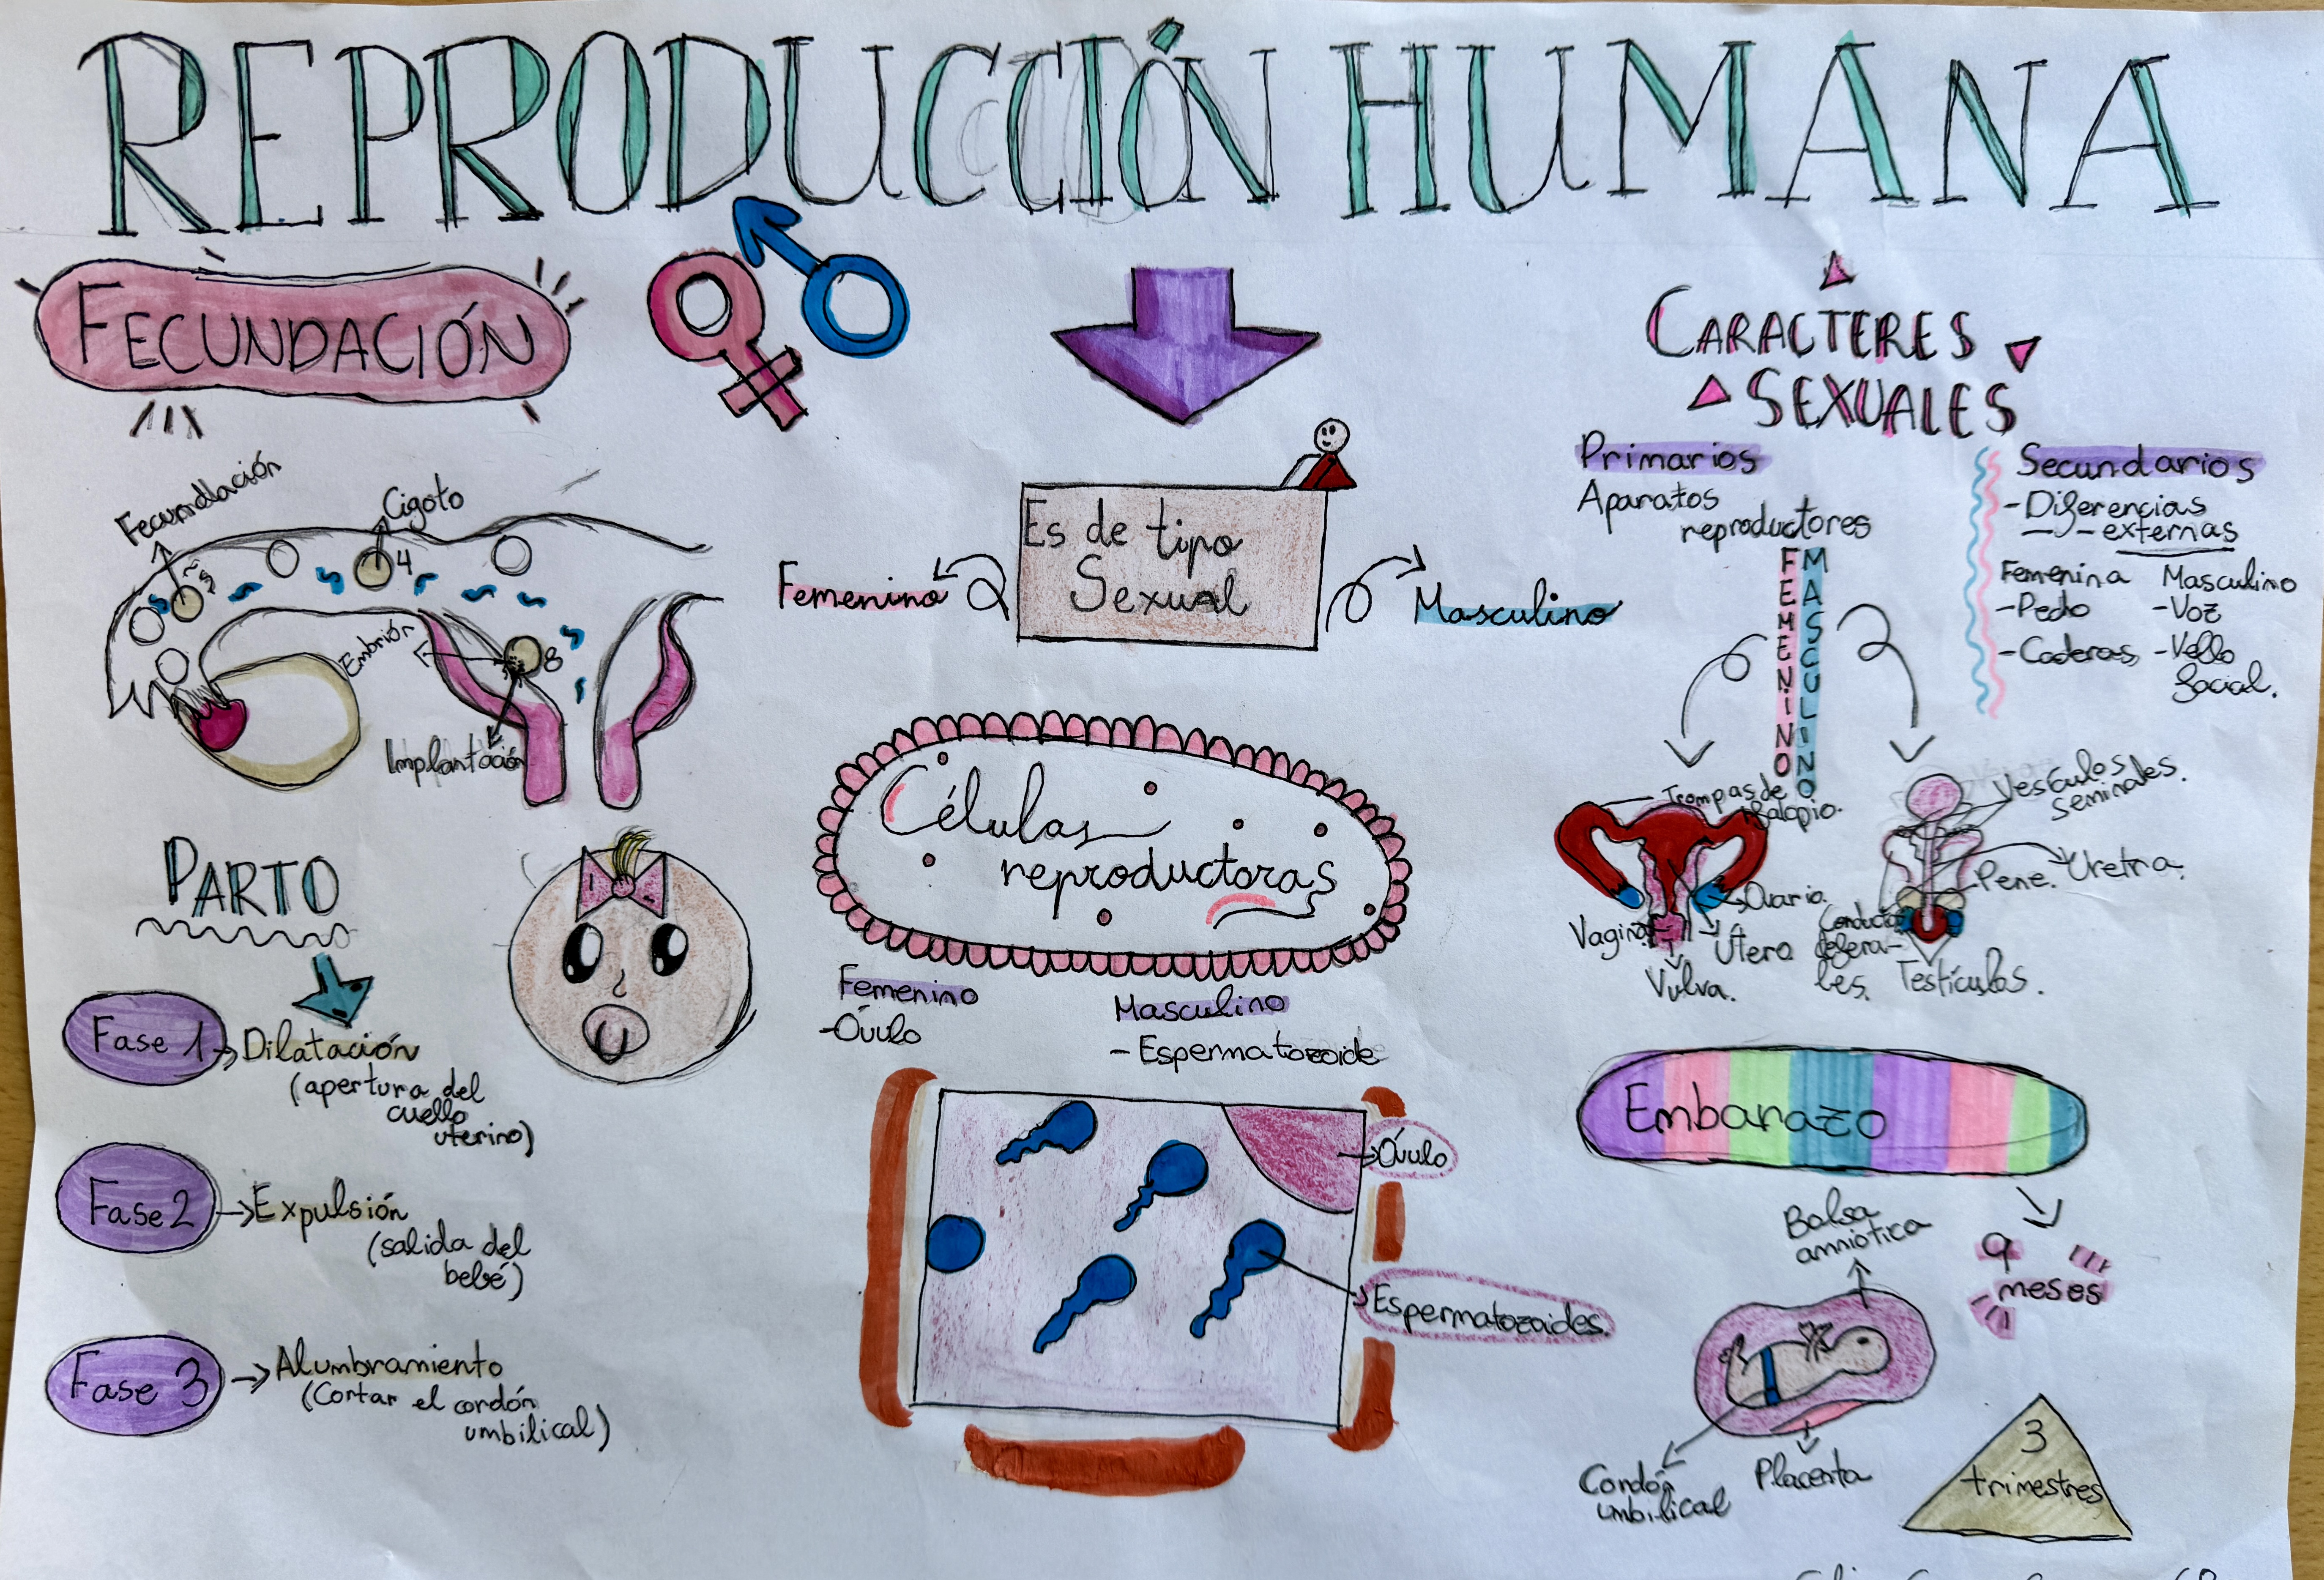 REPRODUCCIÓN HUMANA
FECUNDACIÓN
Fecundación
Cigoto
4
Embrión
8
Implantación
PARTO
Fase 1
Dilatación
(apertura del
cuello
uterino)
Fase 2
Expulsión
(salida del
bebé)
Fase 3
Alumbramiento
(Cortar el cordón
umbilical)
Es de tipo
Sexual
Femenino
Masculino
Células
reproductoras
Femenino
-Óvulo
Masculino
- Espermatozoide
Óvulo
Espermatozoides.
CARACTERES
SEXUALES
Primarios
Aparatos
reproductores
FEMENINO
MASCULINO
Secundarios
-Diferencias
- externas
Femenina
-Pecho
-Caderas
Masculino
-Voz
-Vello
facial.
Trompas de
Falopio.
Ovario
Vagina
Útero
Vulva.
Vesículas
seminales.
Uretra.
Pene.
Conductos
deferen-
tes.
Testículos.
Embarazo
9
meses
Bolsa
amniótica
Cordón
umbilical
Placenta
3
trimestres